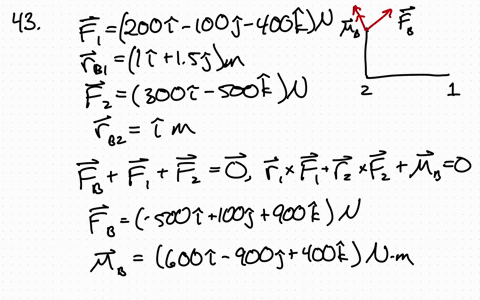 43.
F⃗₁ = (200î - 100ĵ - 400k̂) N
r⃗_B1 = (1î + 1.5ĵ) m
F⃗₂ = (300î - 500k̂) N
r⃗_B2 = î m
M⃗_B F⃗_B
2 1
F⃗_B + F⃗₁ + F⃗₂ = 0⃗, r⃗₁ × F⃗₁ + r⃗₂ × F⃗₂ + M⃗_B = 0
F⃗_B = (-500î + 100ĵ + 900k̂) N
M⃗_B = (600î - 900ĵ + 400k̂) N·m